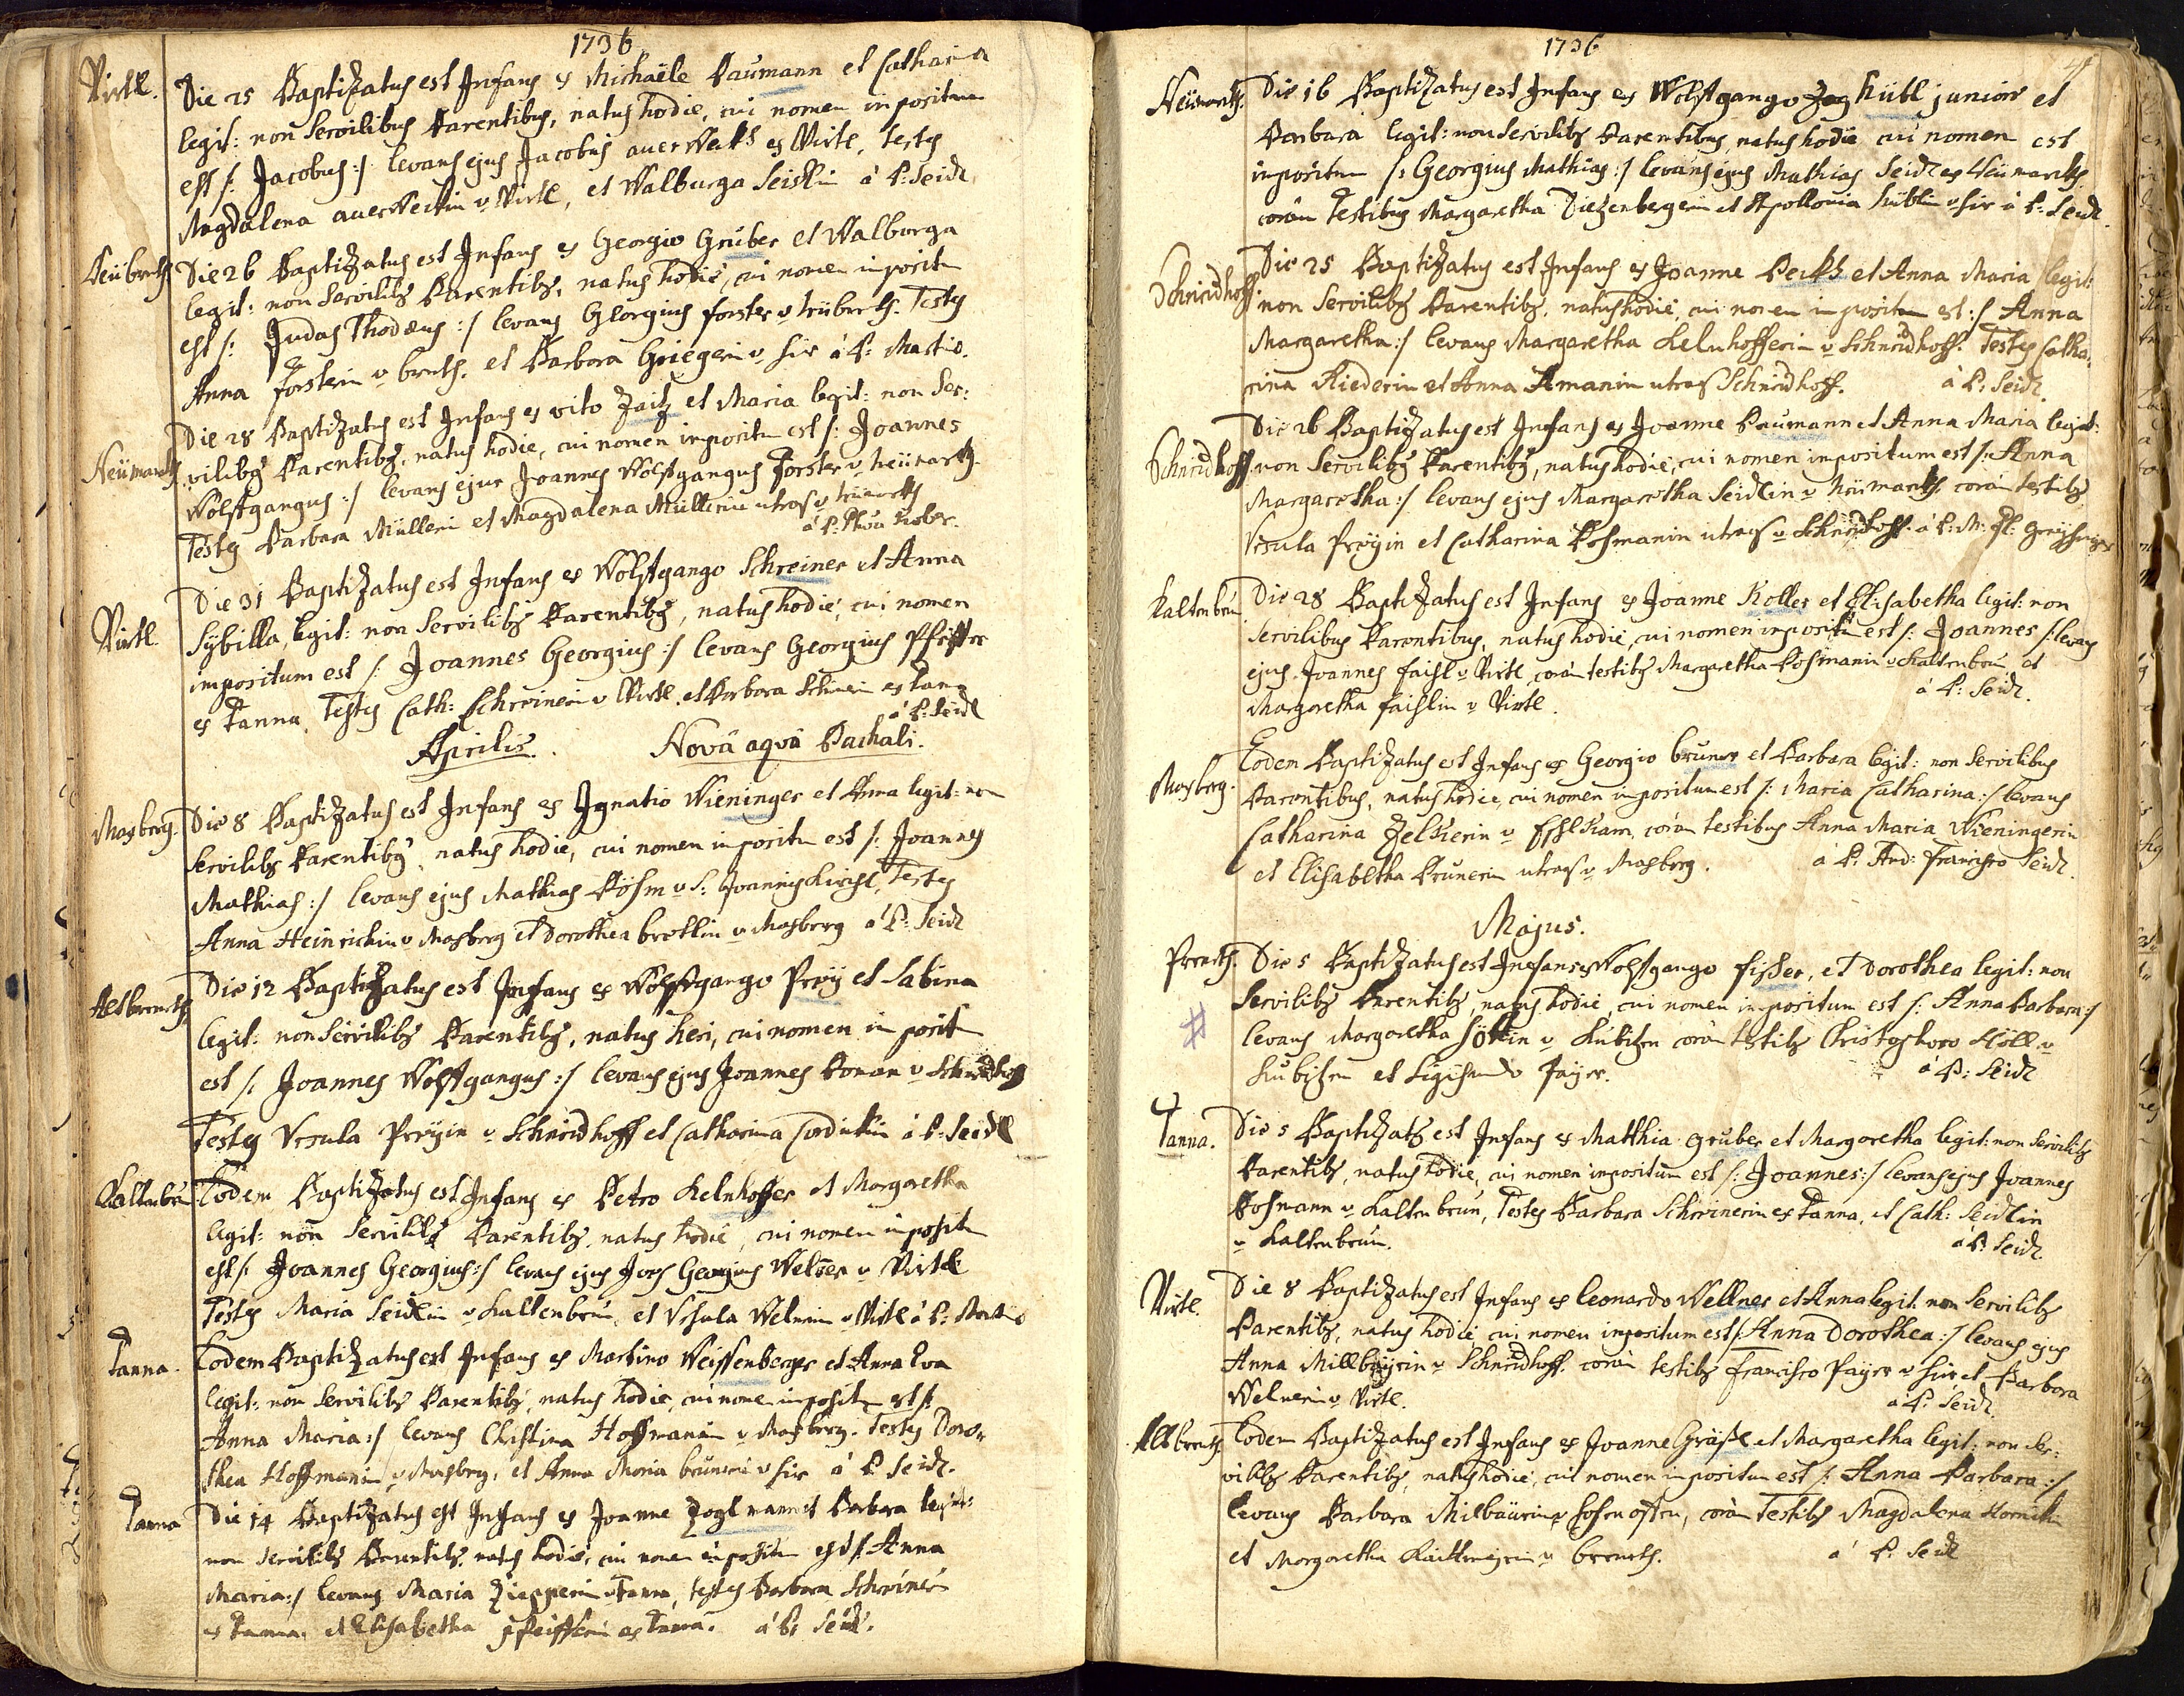 1736
Virtl.
Die 25 Baptizatus est Infans ex Michaële Baumann et Catharina
legit: non Servilibus Parentibus, natus hodie, cui nomen impositum
est /: Jacobus :/ levans ejus Jacobus auerWeckh ex Virtl, testes
Magdalena auerWeckin v Virtl, et Walburga Seidlin à P: Seidl
Die 26 Baptizatus est Infans ex Georgio Gruber et Walburga
legit: non Servilibg Parentibg, natus hodie, cui nomen impositu
est /: Judas Thadæus :/ levans Georgius forster v Testes
Anna forsterin v breuth. et Barbara Griegerin v hir à P:
Neümarckh
Die 28 Baptizatus est Infans ex vito Zaitz et Maria legit: non Ser:
vilibg Parentibg, natus hodie, cui nomen impositu est /: Joannes
Wolfgangus :/ levans ejus Joannes Wolfgangus forster v Neümarckh.
Testes Barbara Müllerin et Magdalena Müllerin utraq v Neümarckh
à P:
Virtl.
Die 31 Baptizatus est Infans ex Wolfgango Schreiner et Anna
Sybilla, legit: non Servilibg Parentibg, natus hodie, cui nomen
impositum est /: Joannes Georgius :/ levans Georgius Pfeiffer
ex Tanna. Testes Cath: Schreinerin v Virtl. et Barbara Schrein ex Tana
à P: Seidl
Aprilis. Novâ aquâ Paschali.
Masberg.
Die 8 Baptizatus est Infans ex Ignatio Wieninger et Anna legit: non
Servilibg Parentibg, natus hodie, cui nomen impositu est /: Joannes
Mathias :/ levans ejus Mathias Böhm v S: Joannis Kirchl, Testes
Anna Heinrichin v Masberg et Dorothea brotlin v Masberg à P: Seidl
Altbreuth.
Die 12 Baptizatus est Infans ex Wolfgango Preÿ et Sabina
legit: non Servilibg Parentibg, natus heri, cui nomen imposit
est /: Joannes Wolfgangus :/ levans ejus Joannes v Schneidhoff
Testes Ursula Preÿin v Schneidhoff et Catharina à P: Seidl
Kaltenbrun
Eodem Baptizatus est Infans ex Petro Kelnhoffer et Margaretha
legit: non Servilibg Parentibg, natus hodie, cui nomen imposit
est /: Joannes Georgius :/ levans ejus Joes Georgius Welner v Virtl
Testes Maria Seidlin v Kaltenbrun, et Ursula Welnerin v Virtl à P:
Tanna.
Eodem Baptizatus est Infans ex Martino Weissenberger et Anna Eva
legit: non Servilibg Parentibg, natus hodie, cui nomen imposit est /:
Anna Maria :/ levans Christina Hoffmanin v Masberg. Testes Doro-
thea Hoffmanin v Masberg, et Anna Maria brunerin v hir à P. Seidl.
Tanna
Die 14 Baptizatus est Infans ex Joanne Zoglmann et Barbara legit:
non servilibg Parentibg, natus hodie, cui nomen impositu est /: Anna
Maria :/ levans Maria Zieglerin v Tanna, testes Barbara Schreinerin
ex Tanna, et Elisabetha Pfeifferin ex Tanna. à P: Seidl.
1736
Neümarckh.
Die 16 Baptizatus est Infans ex Wolfgango hübl juniore et
Barbara legit: non Servilibg Parentibus, natus hodie cui nomen est
impositum /: Georgius Mathias :/ levans ejus Mathias Seidl ex Neümarckh
coram Testibus Margaretha Diezenbergerin et Apollonia hüblin v hir à P: Seidl
Schneidhoff.
Die 25 Baptizatus est Infans ex Joanne Peckh et Anna Maria legit:
non Servilibg Parentibg, natus hodie, cui nomen impositum est :/ Anna
Margaretha :/ levans Margaretha Kelnhofferin v Schneidhoff. Testes Catha-
rina Riederin et Anna Amanin utraq Schneidhoff. à P: Seidl.
Schneidhoff
Die 26 Baptizatus est Infans ex Joanne Baumann et Anna Maria legit:
non Servilibg Parentibg, natus hodie, cui nomen impositum est /: Anna
Margaretha :/ levans ejus Margaretha Seidlin v Neümarckh, coram testibg
Ursula Preÿin et Catharina Poshmanin utraq v Schneidhoff. à P:
Kaltenbrun
Die 28 Baptizatus est Infans ex Joanne Koller et Elisabetha legit: non
Servilibus Parentibus, natus hodie, cui nomen impositu est /: Joannes /: levans
ejus Joannes faishl v Virtl, coram testibg Margaretha Poshmanin v Kaltenbrun et
Margaretha faishlin v Virtl. à P: Seidl.
Masberg.
Eodem Baptizatus est Infans ex Georgio bruner et Barbara legit: non Servilibus
Parentibus, natus hodie, cui nomen impositum est /: Maria Catharina :/ levans
Catharina Zelkerin v coram testibus Anna Maria Wieningerin
et Elisabetha Brunerin utraq v Masberg. à P: And: Francisco Seidl.
Majus.
Preuth.
Die 5 Baptizatus est Infans ex Wolfgango fisher, et Dorothea legit: non
Servilibg Parentibg, natus hodie, cui nomen impositum est /: Anna Barbara :/
levans Margaretha v Kubizen coram testibg Christophoro Höll v
Kubizen et Sigismundo Paÿer. à P: Seidl
Tanna.
Die 5 Baptizatg est Infans ex Matthia gruber et Margaretha legit: non Servilibg
Parentibg, natus hodie, cui nomen impositum est /: Joannes :/ levans ejus Joannes
Poshmann v Kaltenbrun, Testes Barbara Schreinerin ex Tanna, et Cath: Seidlin
v Kaltenbrun. à P: Seidl
Virtl.
Die 8 Baptizatus est Infans ex Leonardo Wellner et Anna legit: non Servilibg
Parentibg, natus hodie, cui nomen impositum est /: Anna Dorothea :/ levans ejus
Anna Millbäyrin v Schneidhoff. coram testibg Francisco Payer v hir et Barbara
Welnerin v Virtl. à P: Seidl.
Altbreuth
Eodem Baptizatus est Infans ex Joanne Gräßl et Margaretha legit: non Ser-
vilibg Parentibg, natus hodie, cui nomen impositum est /: Anna Barbara :/
levans Barbara Milbäurin v coram Testibg Magdalena
et Margaretha v breuth. à P: Seidl